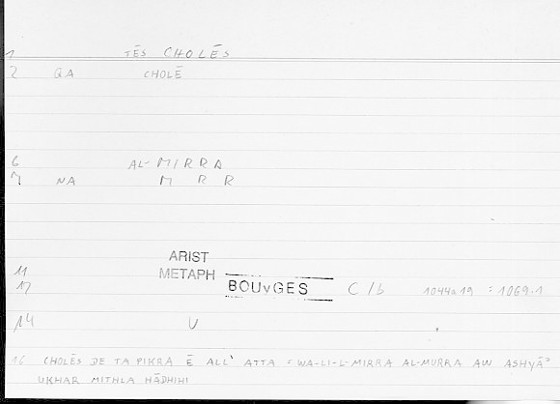 1 TĒS CHOLĒS
2 GA CHOLĒ
6 AL-MIRRA
7 NA M R R
ARIST
11 METAPH
17 BOUvGES C/b 1044a19 : 1069.1
14 V
16 CHOLĒS DE TA PIKRA Ē ALL' ATTA = WA-LI-L-MIRRA AL-MURRA AW ASHYĀ'
UKHAR MITHLA HĀDHIHI